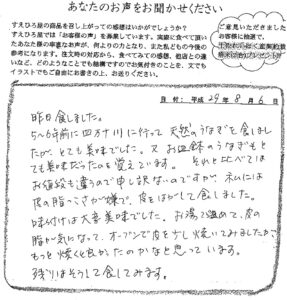 あなたのお声をお聞かせください
すえひろ屋の商品を召し上がってのご感想はいかがでしょうか？
すえひろ屋では「お客様の声」を募集しています。実際に食べて頂い
たあなた様の率直なお声が、何よりの力となり、また私どもの今後の
参考になります。注文時の対応から、食べてみての感想、他店との違
いなど、どのようなことでも結構ですのでお気付きのことを、文でも
イラストでもご自由にお書きの上、お送りください。
ご意見いただきました
お客様に抽選で、
日付：平成 29年 8月 6日
昨日食しました。
5～6年前に四万十川に行って天然のうなぎを食しまし
たが、とても美味でした。又お皿鉢のうなぎもと
ても美味だったのを覚えています。それと比べては
お値段も違うので申し訳ないのですが、私には
皮の脂っこさが嫌で、皮をはがして食しました。
味付けは大変美味でした。お湯で温めて、皮の
脂が気になって、オーブンで皮を少し焼いてみましたが、
もっと焼くと良かったのかなと思っています。
残りはそうして食してみます。